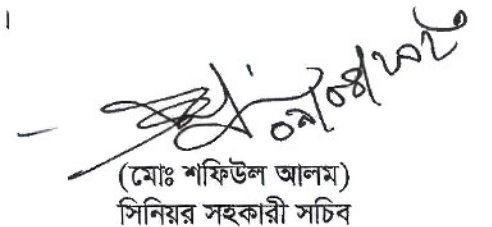 ।
(মোঃ শফিউল আলম)
সিনিয়র সহকারী সচিব